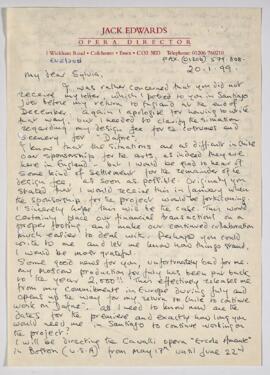 JACK EDWARDS
OPERA DIRECTOR
1 Wickham Road • Colchester • Essex • CO3 3ED Telephone: 01206 760210
ENGLAND FAX. (01206) 574 808.
20.1.99.
My dear Sylvia,
I was rather concerned that you did not
receive my letter, which I posted to you in Santiago
just before my return to England at the end of
December. Again I apologise for having to write
that way, but I needed to clarify the situation
regarding my design fee for the costumes and
scenery for "Dafne".
I know that the situations are as difficult in Chile
over sponsorship for the arts, as indeed they are
here in England – but I would be glad to hear of
some kind of settlement for the remainder of the
design fee as soon as possible. Originally you
stated that I would receive this in January when
the sponsorship for the project would be forthcoming.
I sincerely hope this will be the case. This would
certainly place our financial transactions on a
proper footing and make our continued collaboration
much easier to deal with. Perhaps you could
write to me and let me know how things stand,
I would be most grateful.
Some good news for you, unfortunately bad for me.
My Moscow production for July has been put back
to the year 2,000!! This effectively releases me
from my commitments in Europe during July and
opens up the way for my return to Chile to continue
work on "Dafne". All I need to know now are the
dates for the premiere and exactly how long you
would need me in Santiago to continue working on
the project!
I will be directing the Cavalli opera "Ercole Amante"
in Boston (U.S.A) from May 17th until June 22nd